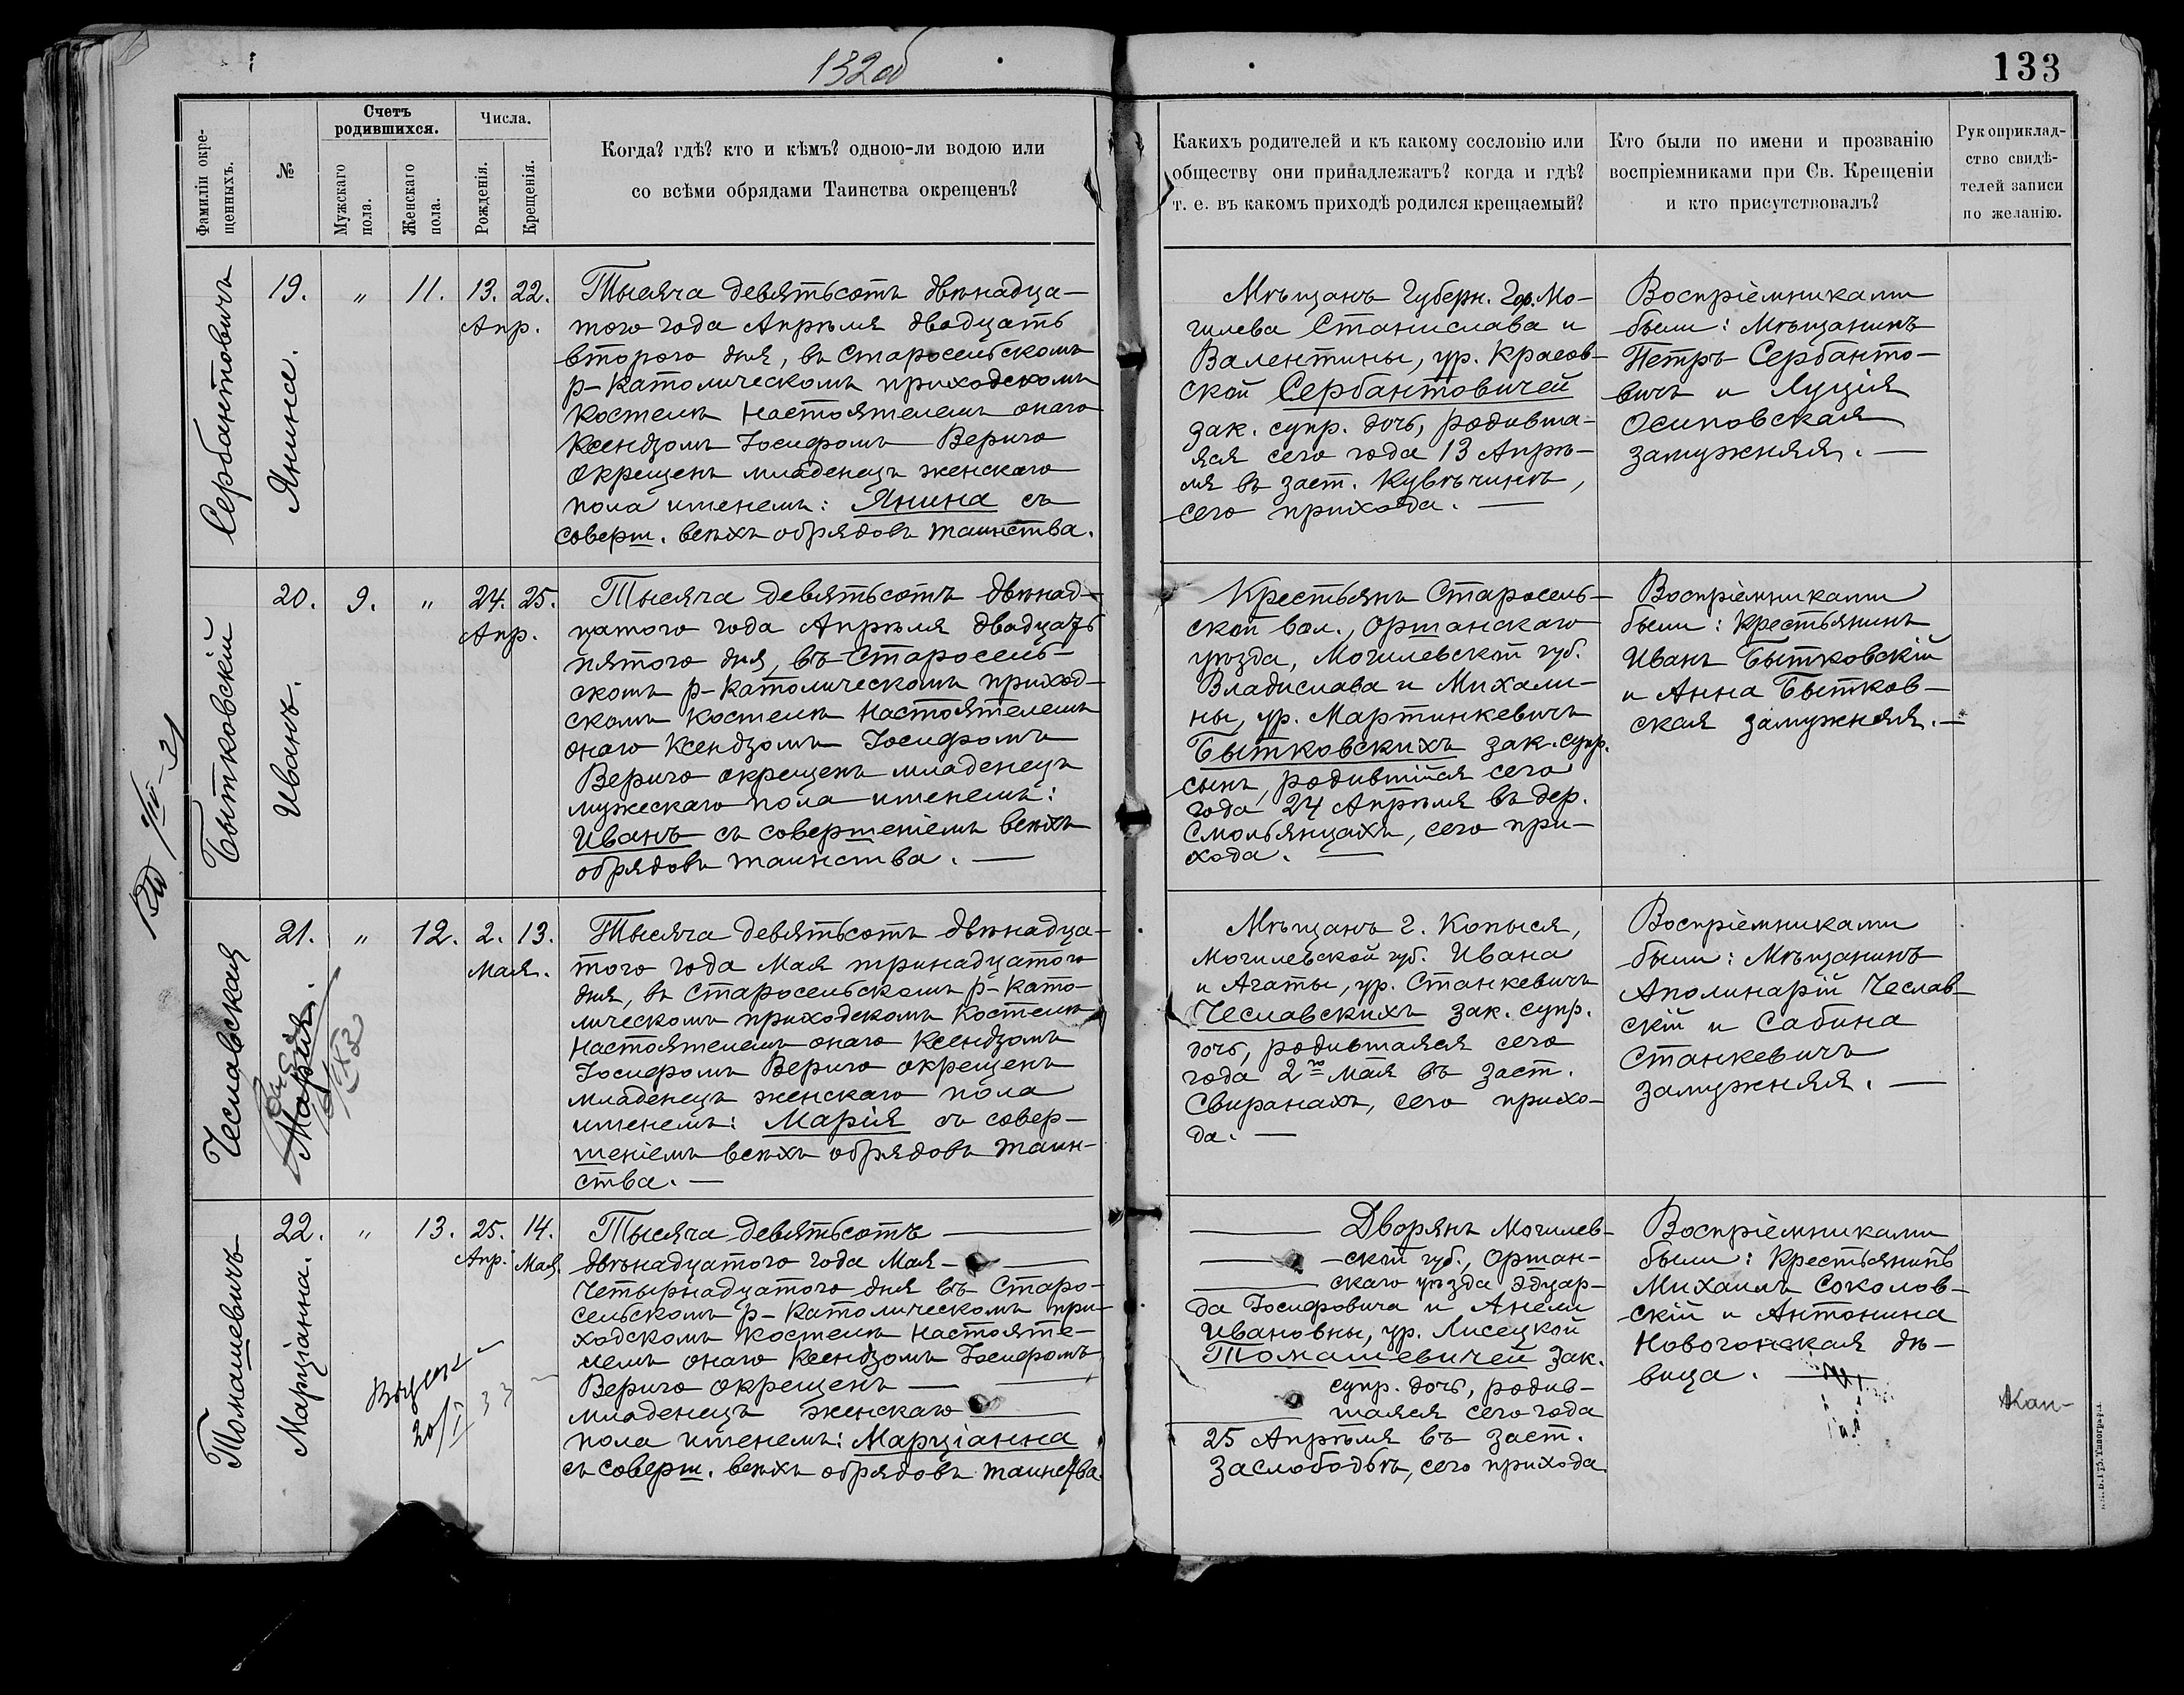 132об
133
Фамиліи окре-
щенныхъ.
№
Счетъ
родившихся.
Мужскаго
пола.
Женскаго
пола.
Числа.
Рожденія.
Крещенія.
Когда? гдѣ? кто и кѣмъ? одною-ли водою или
со всѣми обрядами Таинства окрещенъ?
Какихъ родителей и къ какому сословію или
обществу они принадлежатъ? когда и гдѣ?
т. е. въ какомъ приходѣ родился крещаемый?
Кто были по имени и прозванію
воспріемниками при Св. Крещеніи
и кто присутствовалъ?
Рукоприклад-
ство свидѣ-
телей записи
по желанію.
Сербантовичъ
19.
Янина.
"
11.
13. 22.
Апр.
Тысяча девятьсотъ двѣнадца-
того года Апрѣля двадцать
второго дня, въ Старосельскомъ
р-католическомъ приходскомъ
костелѣ Настоятелемъ онаго
Ксендзомъ Іосифомъ Вериго
окрещенъ младенецъ женскаго
пола именемъ: Янина съ
соверш. всѣхъ обрядовъ таинства.
Мѣщанъ Губерн. Гор. Мо-
гилева Станислава и
Валентины, ур. Красов-
ской Сербантовичей
зак. супр. дочь, родивша-
яся сего года 13 Апрѣ-
ля въ заст. Кувѣчинѣ,
сего прихода. —
Воспріемниками
были: Мѣщанинъ
Петръ Сербанто-
вичъ и Луція
Осиповская
замужняя. —
Бытковскій
20.
Иванъ.
9.
"
24. 25.
Апр.
Тысяча девятьсотъ двѣнад-
цатого года Апрѣля двадцать
пятого дня, въ Старосель-
скомъ р-католическомъ приход-
скомъ костелѣ Настоятелемъ
онаго Ксендзомъ Іосифомъ
Вериго окрещенъ младенецъ
мужескаго пола именемъ:
Иванъ съ совершеніемъ всѣхъ
обрядовъ таинства. —
Крестьянъ Старосель-
ской вол., Оршанскаго
уѣзда, Могилевской губ.
Владислава и Михали-
ны, ур. Мартинкевичъ
Бытковскихъ зак. супр.
сынъ, родившійся сего
года 24 Апрѣля въ дер.
Смольянцахъ, сего при-
хода. —
Воспріемниками
были: Крестьянинъ
Иванъ Бытковскій
и Анна Бытков-
ская замужняя. —
Чеславская
21.
Марія.
"
12.
2. 13.
Мая.
Тысяча девятьсотъ двѣнадца-
того года Мая тринадцатого
дня, въ Старосельскомъ р-като-
лическомъ приходскомъ костелѣ
Настоятелемъ онаго Ксендзомъ
Іосифомъ Вериго окрещенъ
младенецъ женскаго пола
именемъ: Марія съ совер-
шеніемъ всѣхъ обрядовъ таин-
ства. —
Мѣщанъ г. Копыся,
Могилевской губ. Ивана
и Агаты, ур. Станкевичъ
Чеславскихъ зак. супр.
дочь, родившаяся сего
года 2го Мая въ заст.
Свиранахъ, сего прихо-
да. —
Воспріемниками
были: Мѣщанинъ
Аполинарій Чеслав-
скій и Сабина
Станкевичъ
замужняя. —
Томашевичъ
22.
Марціанна.
"
13.
25. 14.
Апр. Мая.
20/I 33
Тысяча девятьсотъ —
двѣнадцатого года Мая —
Четырнадцатого дня въ Старо-
сельскомъ р-католическомъ при-
ходскомъ костелѣ Настояте-
лемъ онаго Ксендзомъ Іосифомъ
Вериго окрещенъ —
младенецъ женскаго —
пола именемъ: Марціанна
съ соверш. всѣхъ обрядовъ таинства.
— Дворянъ Могилев-
— ской губ., Оршан-
— скаго уѣзда Эдуар-
да Іосифовича и Анели
Ивановны, ур. Лисецкой
Томашевичей зак.
супр. дочь, родив-
— шаяся сего года
25 Апрѣля въ заст.
Заслободьѣ, сего прихода.
Воспріемниками
были: Крестьянинъ
Михаилъ Соколов-
скій и Антонина
Новогонская дѣ-
вица. —